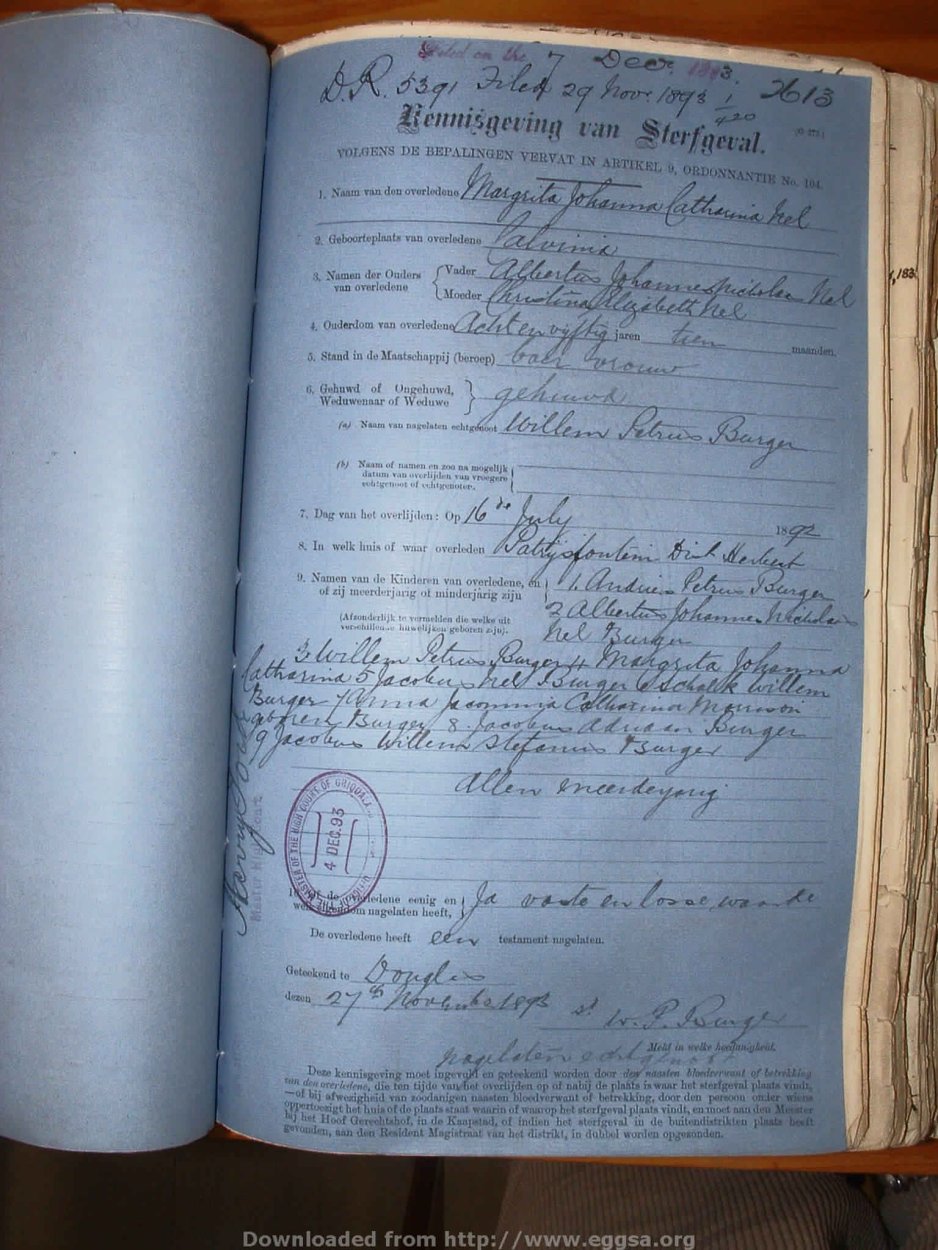 on the 7 Dec. 1893.
D.R. 5391 Filed 29 Novr. 1893 2613
Kennisgeving van Sterfgeval.
VOLGENS DE BEPALINGEN VERVAT IN ARTIKEL 9, ORDONNANTIE No. 104.
1. Naam van den overledene Margrita Johanna Catharina Nel
2. Geboorteplaats van overledene Calvinia
3. Namen der Ouders van overledene { Vader Albertus Johannes Nicholaas Nel
Moeder Christina Elizabeth Nel
4. Ouderdom van overledene Acht en vyftig jaren tien maanden.
5. Stand in de Maatschappij (beroep) boer vrouw
6. Gehuwd of Ongehuwd, Weduwenaar of Weduwe } gehuwd
(a) Naam van nagelaten echtgenoot Willem Petrus Burger
(b) Naam of namen en zoo na mogelijk
datum van overlijden van vroegere
echtgenoot of echtgenoten.
7. Dag van het overlijden: Op 16de July 1892
8. In welk huis of waar overleden Patrysfontein Dist Herbert
9. Namen van de Kinderen van overledene, en of zij meerderjarig of minderjarig zijn } 1. Andries Petrus Burger
2 Albertus Johannes Nicholaas
(Afzonderlijk te vermelden die welke uit verschillende huwelijken geboren zijn). Nel Burger
3 Willem Petrus Burger 4 Margrita Johanna
Catharina 5 Jacobus Nel Burger 6 Schalk Willem
Burger 7 Anna Jacomina Catharina Morrison
geboren Burger 8. Jacobus Adriaan Burger
9 Jacobus Willem Stefanus Burger
Allen meerderjarig
OFFICE OF THE MASTER OF THE HIGH COURT OF GRIQUALA
4 DEC. 93
10. Of de overledene eenig en welk eigendom nagelaten heeft, } Ja vaste en losse waarde
De overledene heeft een testament nagelaten.
Geteekend te Douglas
dezen 27th November 1893 W. P. Burger
Meld in welke hoedanigheid.
nagelaten echtgenoot
Deze kennisgeving moet ingevuld en geteekend worden door den naasten bloedverwant of betrekking
van den overledene, die ten tijde van het overlijden op of nabij de plaats is waar het sterfgeval plaats vindt,
—of bij afwezigheid van zoodanigen naasten bloedverwant of betrekking, door den persoon onder wiens
oppertoezigt het huis of de plaats staat waarin of waarop het sterfgeval plaats vindt, en moet aan den Meester
bij het Hoof Gerechtshof, in de Kaapstad, of indien het sterfgeval in de buitendistrikten plaats heeft
gevonden, aan den Resident Magistraat van het distrikt, in dubbel worden opgezonden.
Downloaded from http://www.eggsa.org